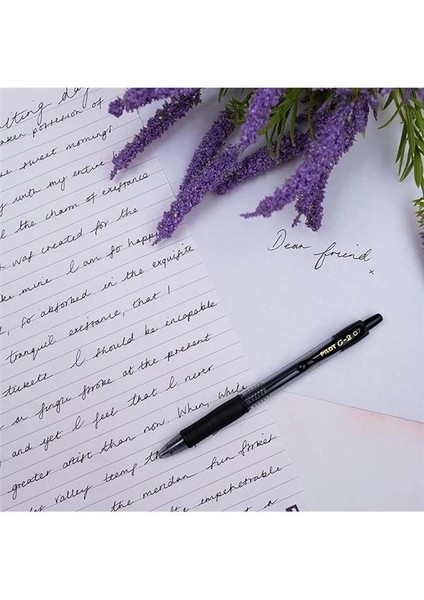 taken possession of
sweet mornings
with my entire
the charm of existance
was created for the
mine. I am so happy
so absorbed in the exquisite
tranquil existance, that I
I should be incapable
a single stroke at the present
and yet I feel that I never
greater artist than now. When, while
valley teems
the meridian sun strikes
the impenetrable
Dear friend
x
PILOT G-2 07